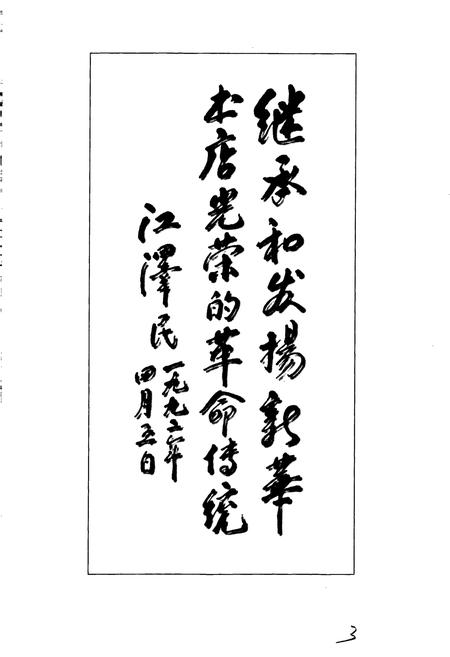 继承和发扬新華
书店光荣的革命传统
江澤民
一九九二年
四月五日
3